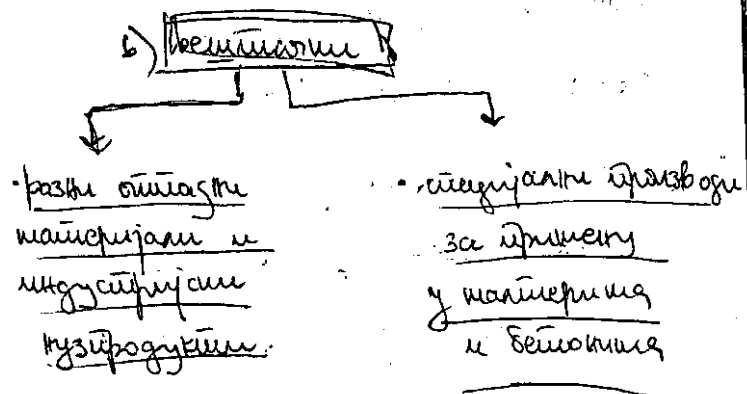 б) вештачки
• разни отпадни
материјали и
индустријски
нузпродукти.
• специјални производи
за примену
у малтерима
и бетонима